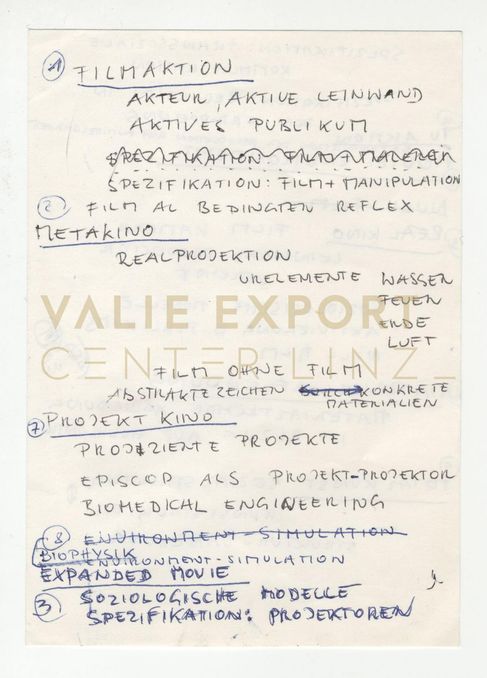 1 FILMAKTION
AKTEUR, AKTIVE LEINWAND
AKTIVES PUBLIKUM
SPEZIFIKATION: FILM + MANIPULATION
2 FILM AL BEDINGTEN REFLEX
METAKINO
REALPROJEKTION
URELEMENTE WASSER
FEUER
ERDE
LUFT
VALIE EXPORT
CENTER LINZ
FILM OHNE FILM
ABSTRAKTE ZEICHEN KONKRETE
MATERIALIEN
7 PROJEKT KINO
PROJIZIERTE PROJEKTE
EPISCOP ALS PROJEKT-PROJEKTOR
BIOMEDICAL ENGINEERING
8 ENVIRONMENT-SIMULATION
BIOPHYSIK
ENVIRONMENT-SIMULATION
EXPANDED MOVIE
3 SOZIOLOGISCHE MODELLE
SPEZIFIKATION: PROJEKTOREN